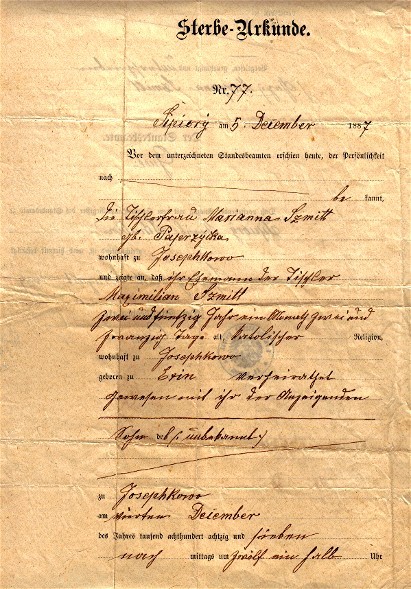 Sterbe-Urkunde.
Nr. 77.
Sipiory am 5 December 1887
Vor dem unterzeichneten Standesbeamten erschien heute, der Persönlichkeit
nach
be kannt,
die Tischlerfrau Marianna Szmitt
geb.
wohnhaft zu Josephkowo
und zeigte an, daß ihr Ehemann der Tischler
Maximilian Szmitt
zwei und fünfzig Jahr ein Monat zwei und
zwanzig Tage alt, katolischer Religion,
wohnhaft zu Josephkowo
geboren zu Exin verheirathet
gewesen mit ihr der Anzeigenden
Sohn des (: unbekannt :)
zu Josephkowo
am vierten December
des Jahres tausend achthundert achtzig und sieben
nach mittags um zwölf ein halb Uhr